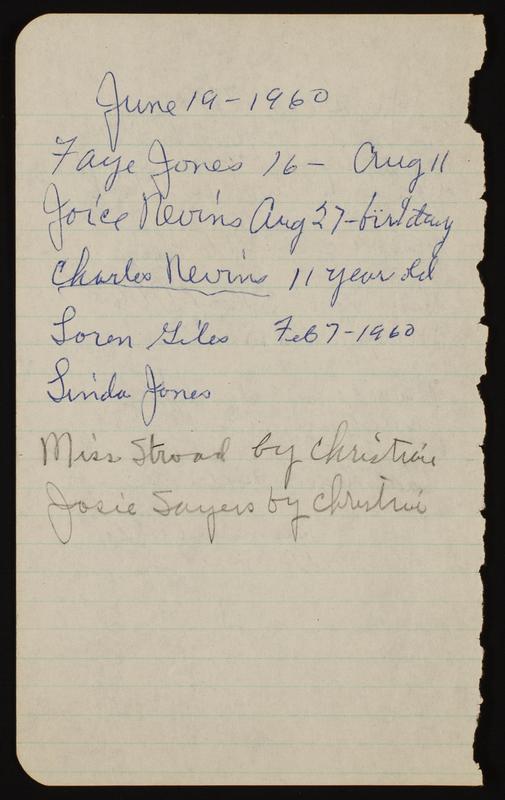 June 19-1960
Faye Jones 16- Aug 11
Joice Nevins Aug 27-birtday
Charles Nevins 11 year old
Loren Giles Feb 7-1960
Linda Jones
Miss Stroad by Christine
Josie Sayers by Christine